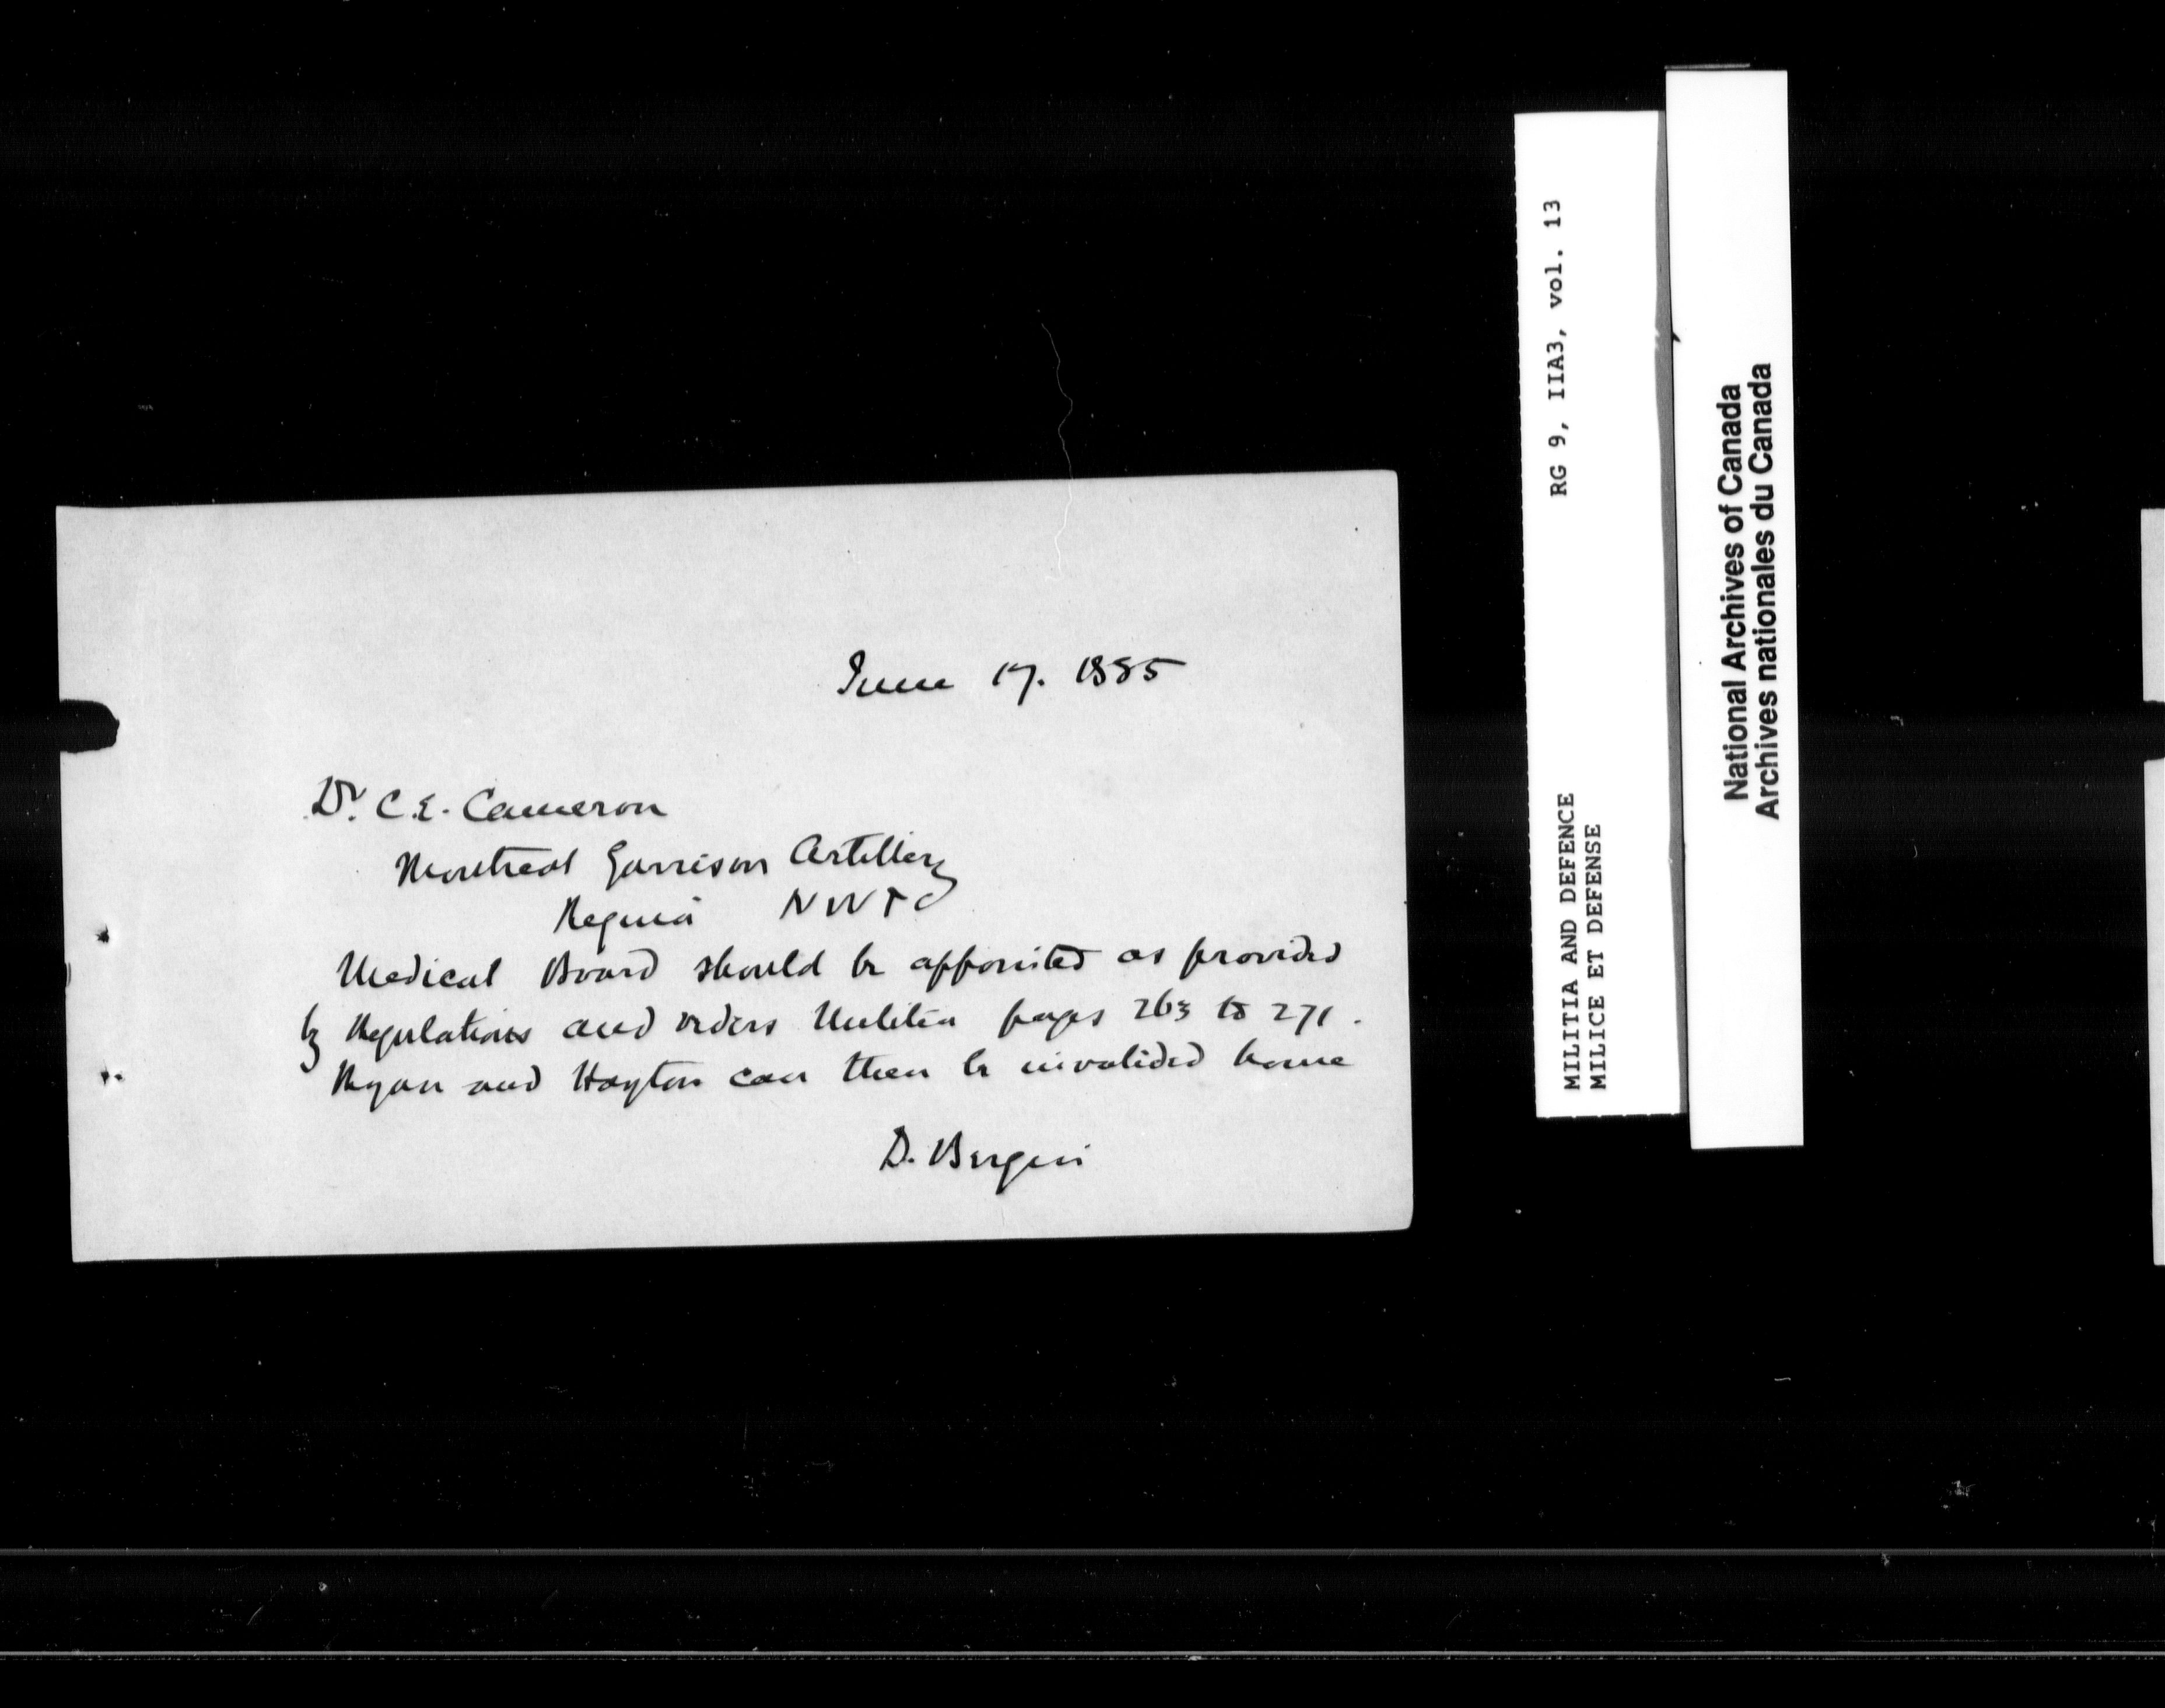 June 17. 1885
Dr. C.E. Cameron
Montreal Garrison Artillery
Regina NWT
Medical Board should be appointed as provided
by Regulations and orders Militia pages 263 to 271.
Ryan and Hayton can then be invalided home
D. Bergin
RG 9, IIA3, vol. 13
MILITIA AND DEFENCE
MILICE ET DEFENSE
National Archives of Canada
Archives nationales du Canada